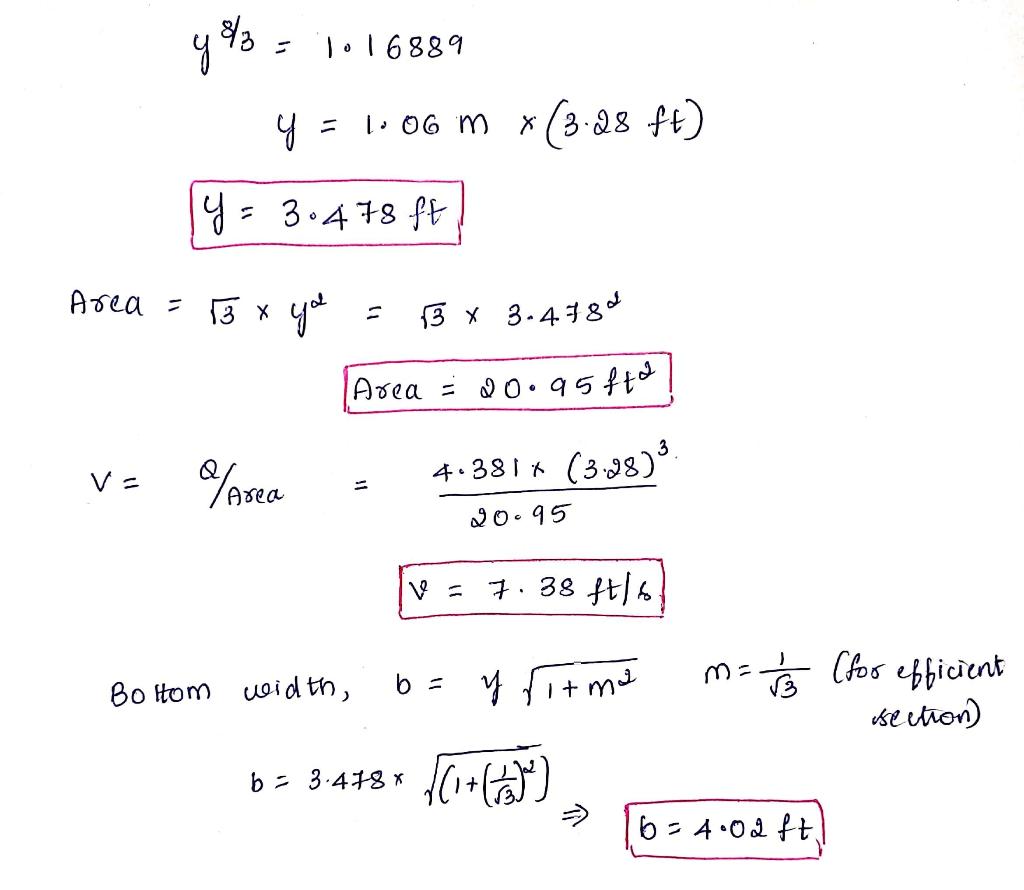 y^8/3 = 1.16889
y = 1.06 m × (3.28 ft)
y = 3.478 ft
Area = √3 × y² = √3 × 3.478²
Area = 20.95 ft²
V = Q/Area = 4.381 × (3.28)³ / 20.95
V = 7.38 ft/s
Bottom width, b = y √1+m² m = 1/√3 (for efficient section)
b = 3.478 × √(1+(1/√3)²) ⇒ b = 4.02 ft